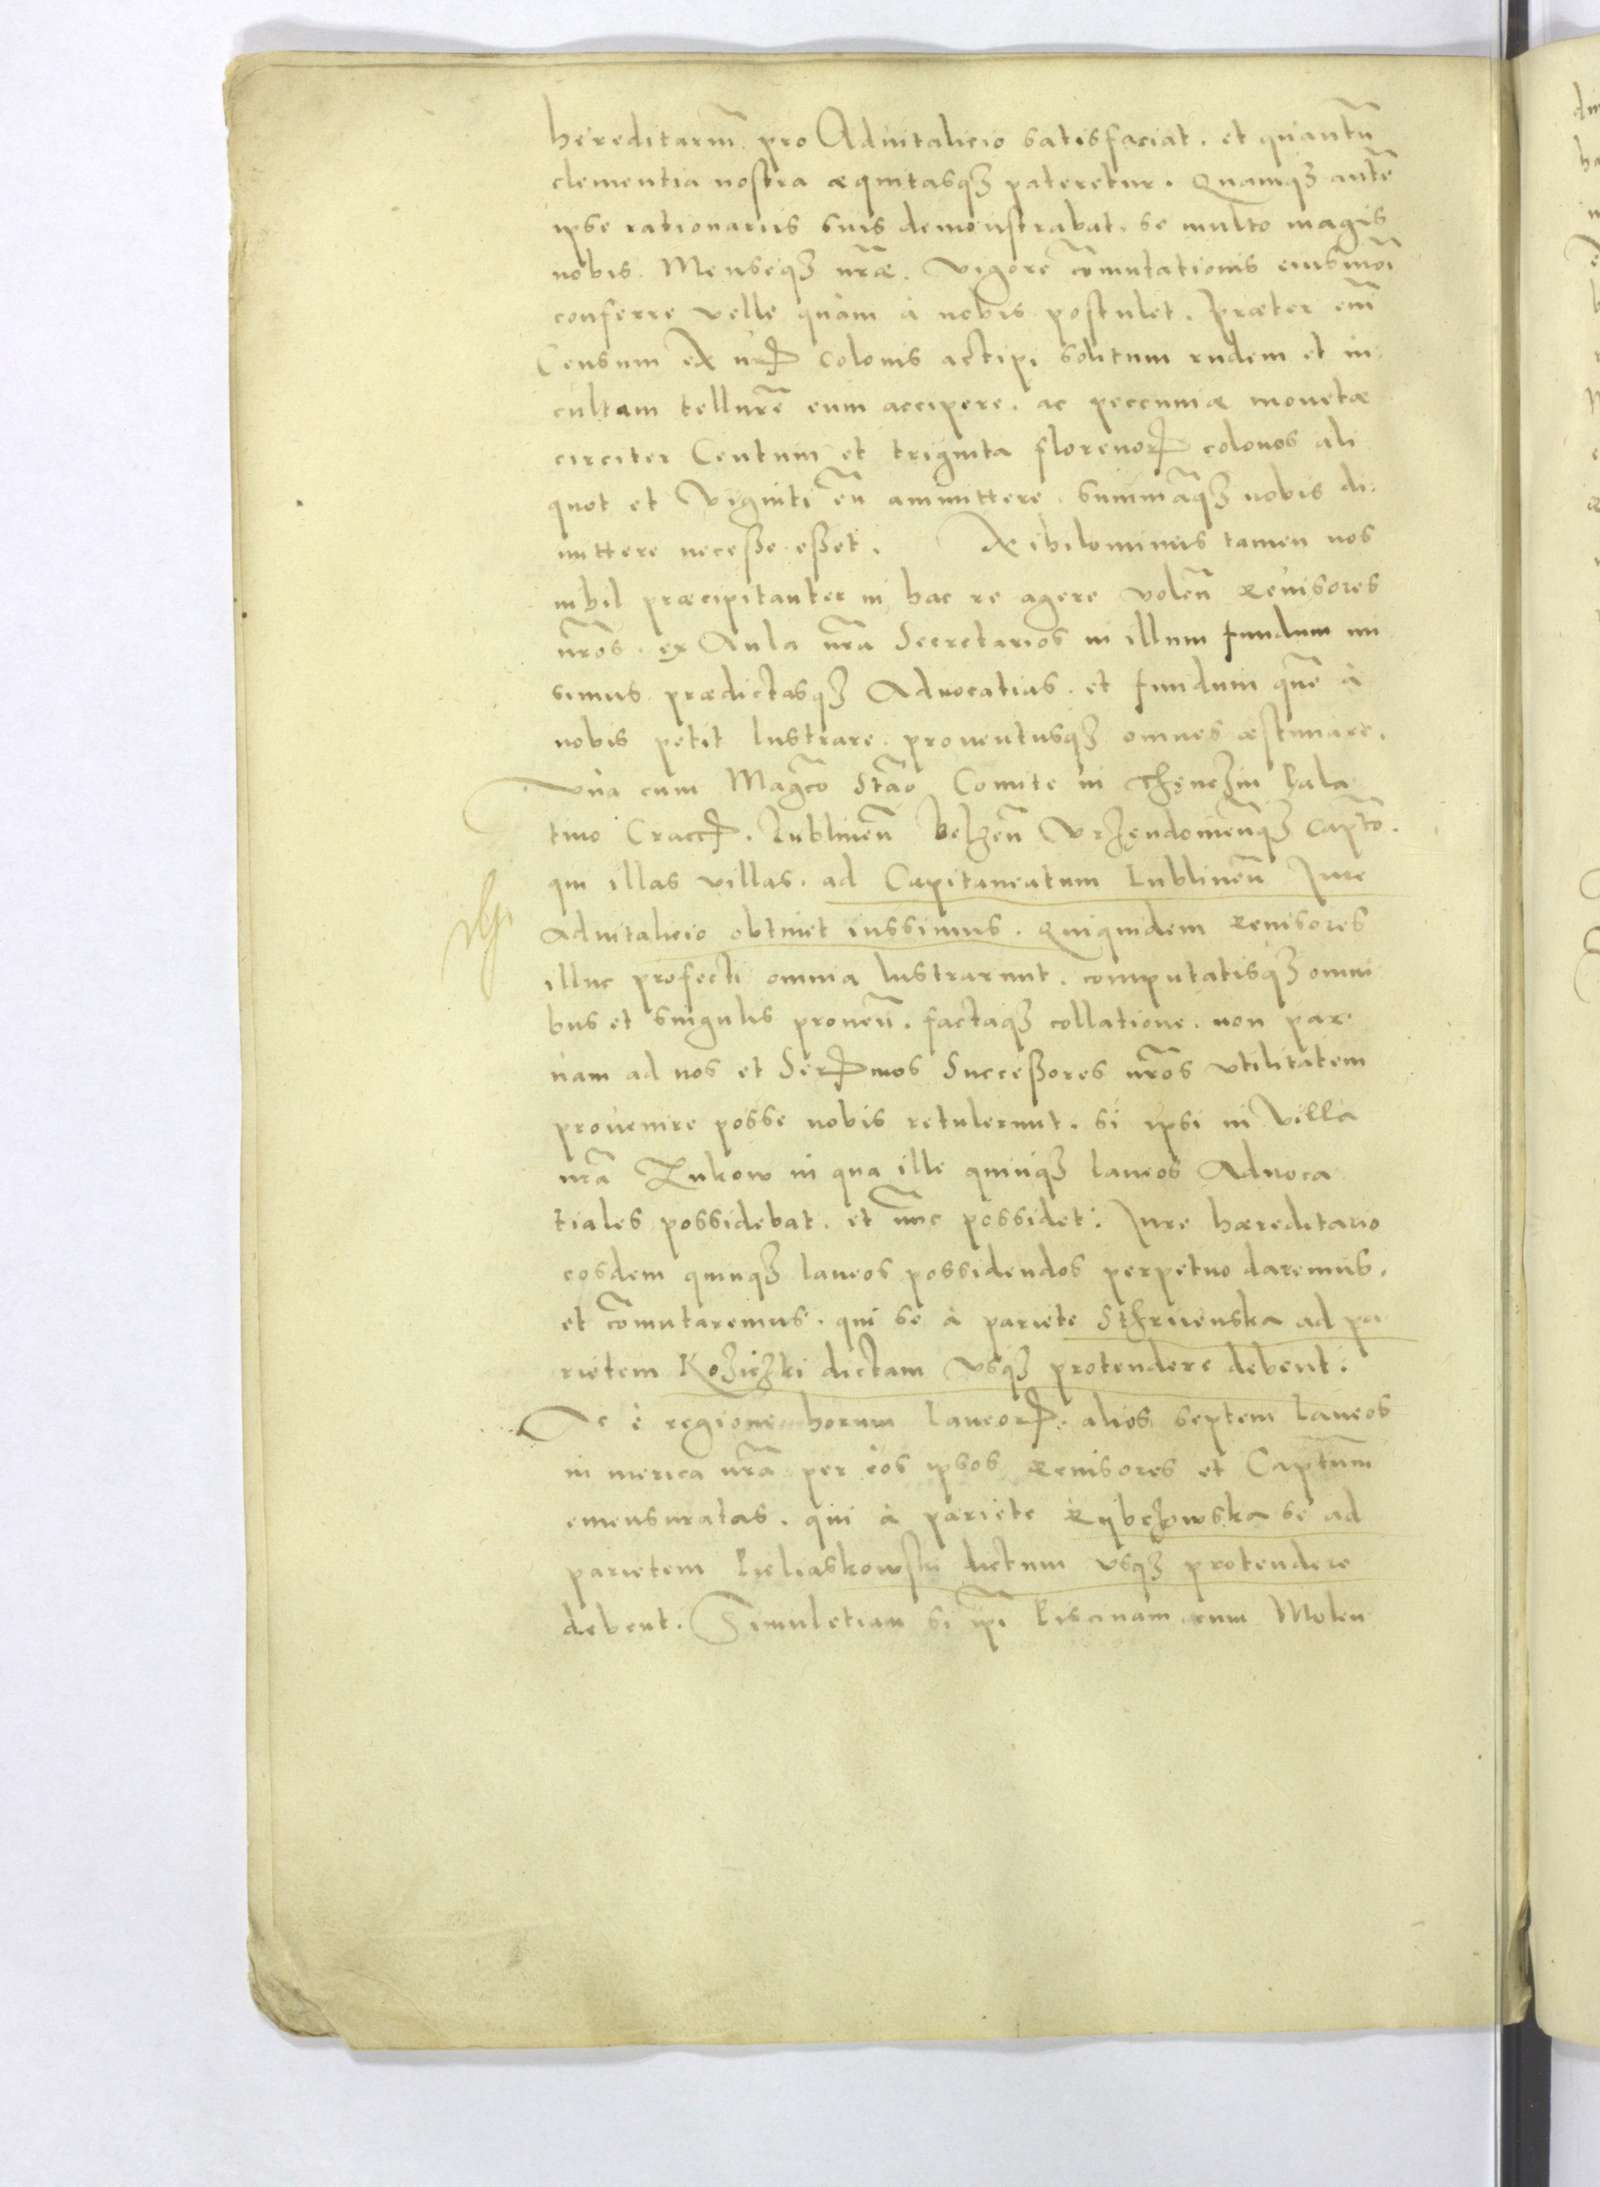 hereditarm̄ pro Aduitalicio satisfaciat. et quantū
clementia nostra æquitasqꝫ pateretur. Quamqꝫ autē
ipse rationariis suis demonstrabat. se multo magis
nobis. Menseqꝫ nr̄æ. vigore cōmutationis eiusmōi
conferre velle quàm à nobis postulet. Præter em̄
Censum ex colonis accipi solitum rudem et in
cultam tellurē eum accipere. ac peccuniæ monetæ
circiter Centum et triginta florenorꝝ colonos ali
quot et viginti eū ammittere. summāqꝫ nobis di
mittere necesse esset. Nihilominus tamen nos
nihil præcipitanter in hac re agere volen̄ Reuisores
nr̄os. ex Aula nr̄a Secretarios in illum fundum mi
simus prædictasqꝫ Aduocatias. et fundum quē à
nobis petit lustrare. prouentusqꝫ omnes æstimare.
Vnà cum Magco Stāo Comite in Thęnczin Pala
tino Craccꝝ. Lublinen̄ Belzen̄ Vrzendouien̄qꝫ Captō.
qui illas villas. ad Capitaneatum Lublinen̄ Jure
aduitalicio obtinet iussimus. Quiquidem Reuisores
illuc profecti omnia lustrarunt. computatisqꝫ omni
bus et singulis prouen̄. factaqꝫ collatione. non par
uam ad nos et Serꝝmos Successores nr̄os vtilitatem
prouenire posse nobis retulerunt. si ipsi in villa
nr̄a Zukow in qua ille quinqꝫ laneos Aduoca
tiales possidebat. et nūc possidet: Jure hæreditario
eosdem quinqꝫ laneos possidendos perpetuo daremus.
et cōmutaremus. qui se à pariete Sthrzienska ad pa
rietem Koziczki dictam vsqꝫ protendere debent.
Ac è regione horum laneorꝝ. alios septem laneos
in merica nr̄a per eos ipsos Reuisores et Captūm
emensuratas. qui à pariete Rybczowska se ad
parietem Pieliaskowski dictum vsqꝫ protendere
debent. Simuletiam si ip̄i Piscinam cum Molen